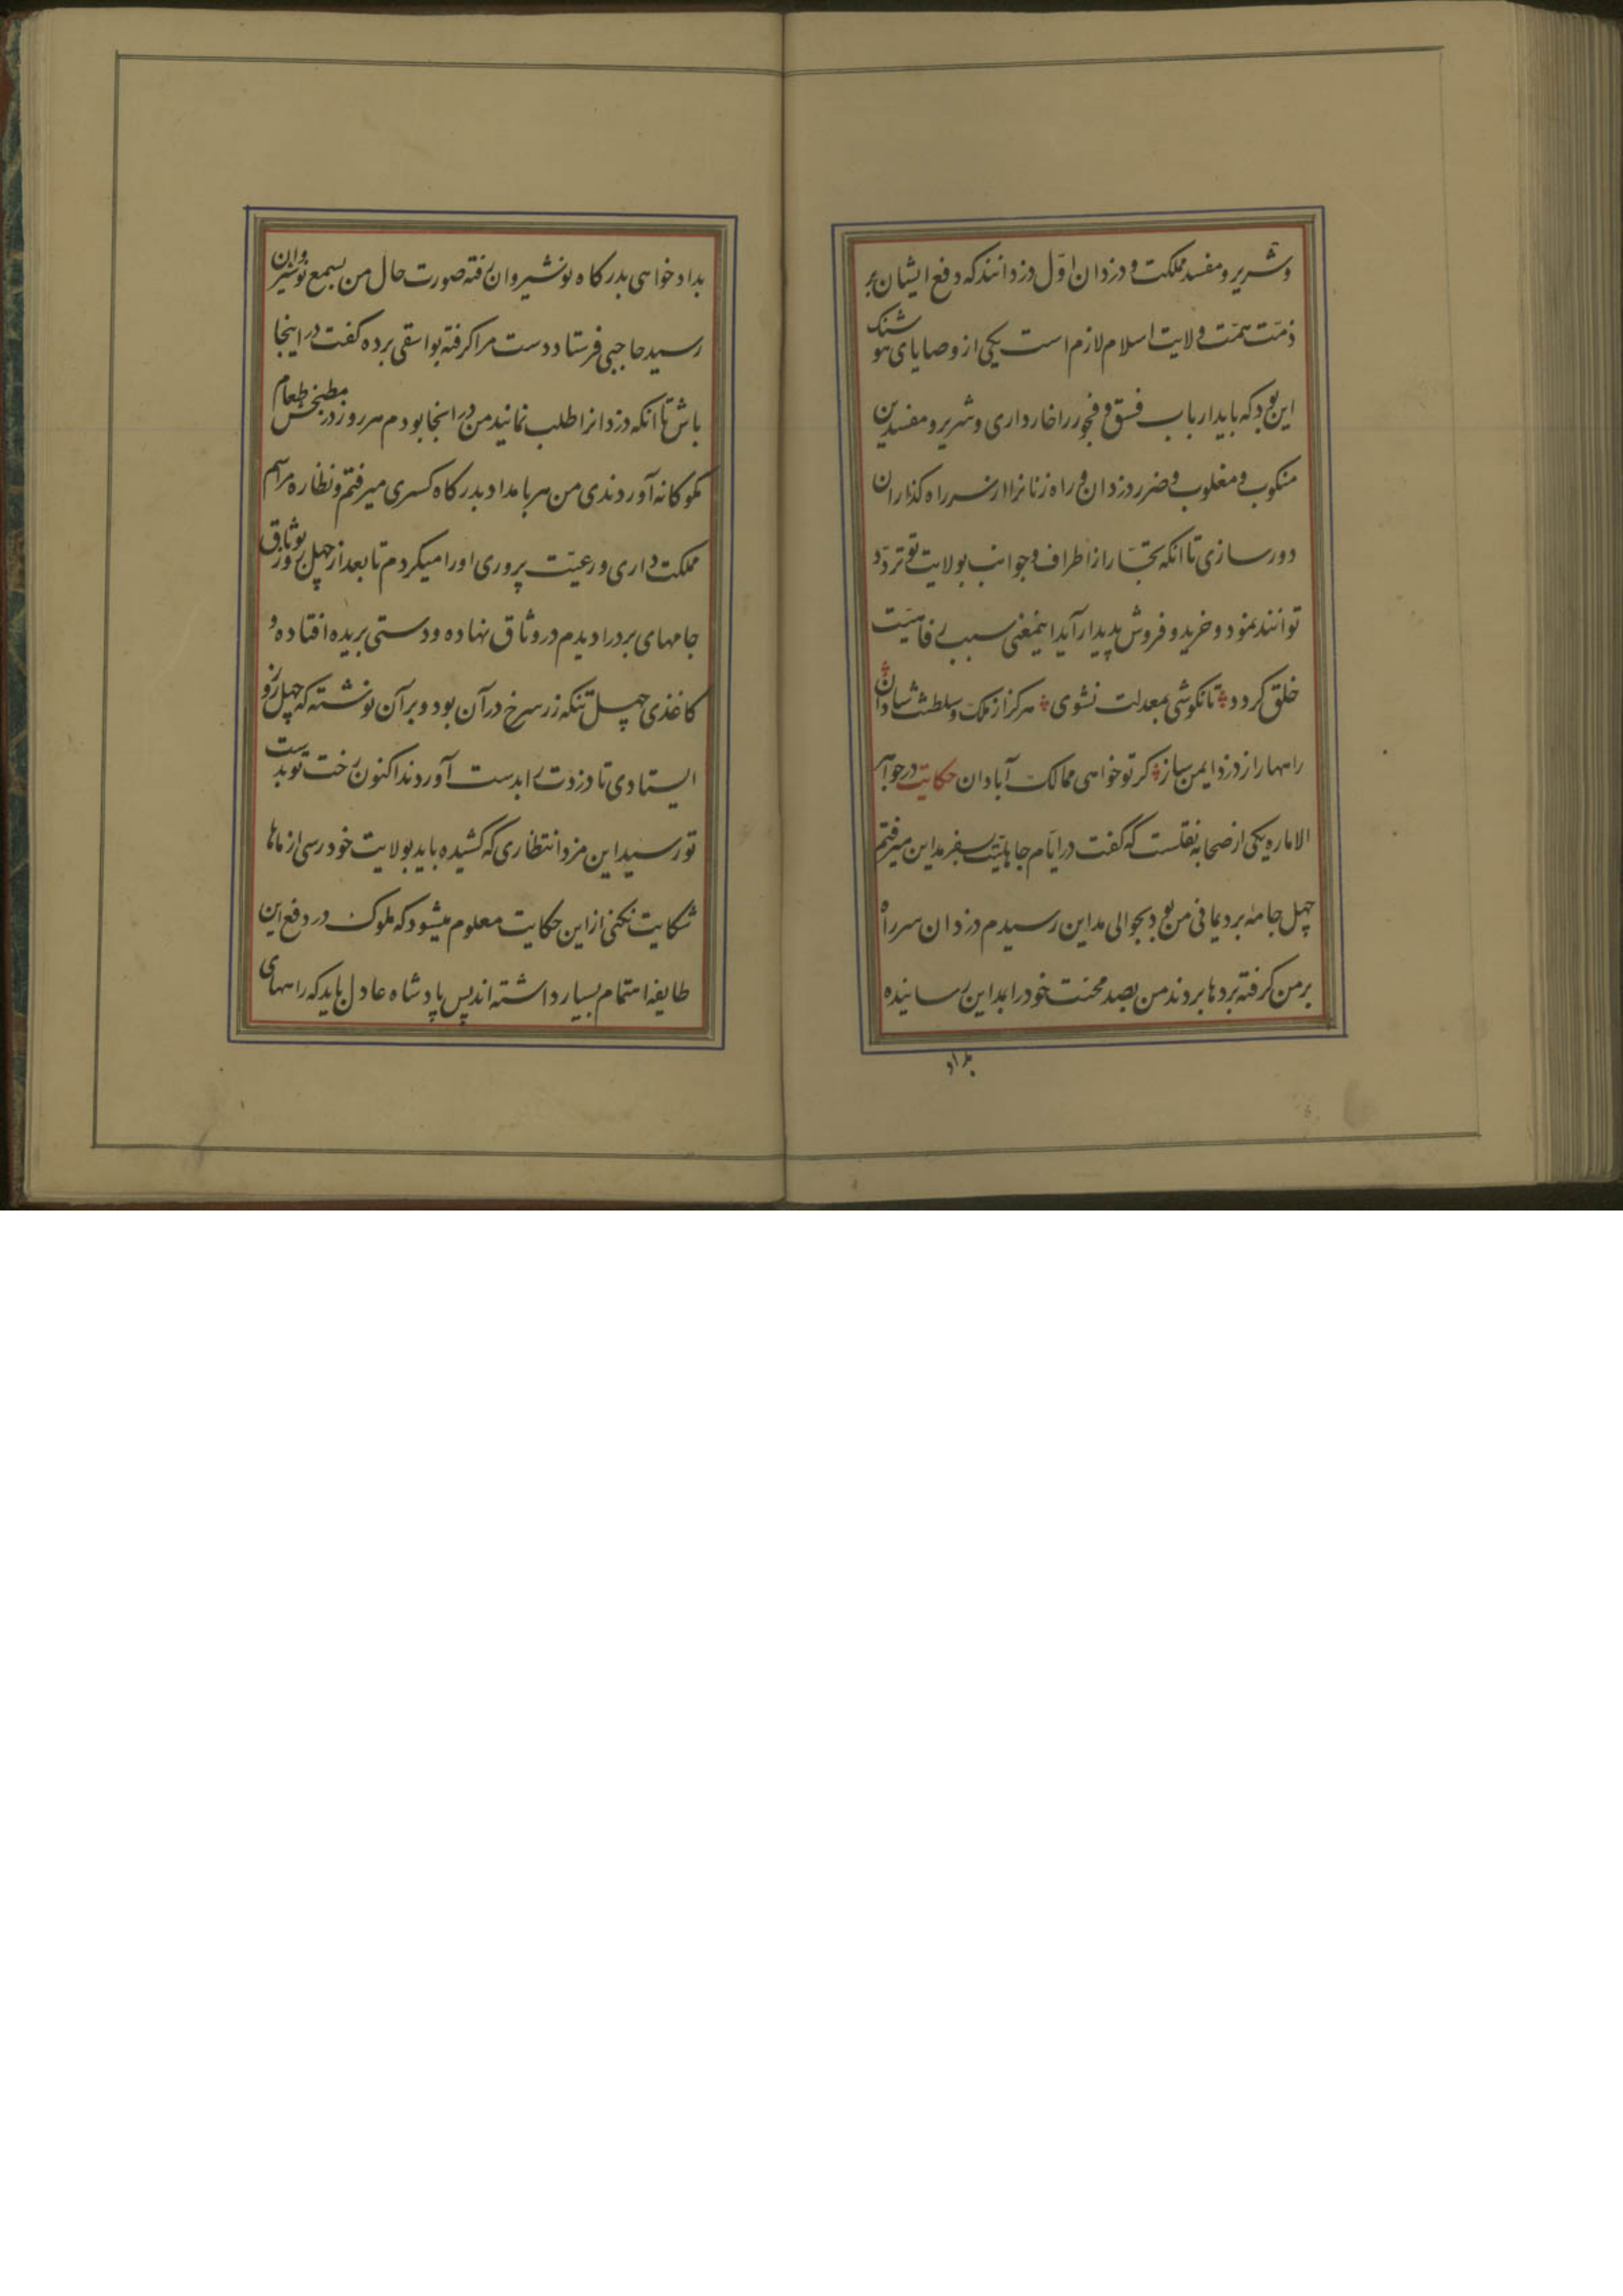 و شریر و مفسد مملکت و دزدان اوّل دزدانند که دفع ایشان بر
ذمّت همّت ولایت اسلام لازم است یکی از وصایای هوشنک
این بود که باید ارباب فسق و فجور را خار داری و شریر و مفسدین
منکوب و مغلوب و ضرر دزدان و راه زنانرا از سر راه کذاران
دور سازی تا آنکه تجّار از اطراف و جوانب بولایت تو تردّد
توانند نمود و خرید و فروش پدیدار آید اینمعنی سبب رفاهیّت
خلق کردد تا نکوشی بمعدلت نشوی هرکز از ملک و سلطنت شادان
راهها را از دزد ایمن ساز کر تو خواهی ممالک آبادان حکایت در جواهر
الاماره یکی از صحابه نقلست که گفت در ایّام جاهلیّت بسفر مداین میرفتم
چهل جامهٔ برد یمانی من بود بحوالی مداین رسیدم دزدان سر راه
بر من کرفته بردها بردند من بصد محنت خود را بمداین رسانیده
بداد
بداد خواهی بدرکاه نوشیروان رفته صورت حال من بسمع نوشیروان
رسید حاجبی فرستاد دست مرا کرفته بواسقی برده کفت در اینجا
باش تا آنکه دزدانرا طلب نمانید من در اینجا بودم هر روز در مطبخش طعام
ملوکانه آوردندی من هر بامداد بدرکاه کسری میرفتم و نظاره مراسم
مملکت داری و رعیّت پروری او را میکردم تا بعد از چهل روز بوثاق
جامهای برد را دیدم در وثاق نهاده و دستی بریده افتاده و
کاغذی چهل تنکه زر سرخ در آن بود و بر آن نوشته که چهل روز
ایستادی تا دزدت را بدست آوردند اکنون رخت تو بدست
تو رسید این مزد انتظاری که کشیده باید بولایت خود رسی از ماها
شکایت نکنی از این حکایت معلوم میشود که ملوک در دفع این
طایفه اهتمام بسیار داشته اند پس پادشاه عادل باید که راههای